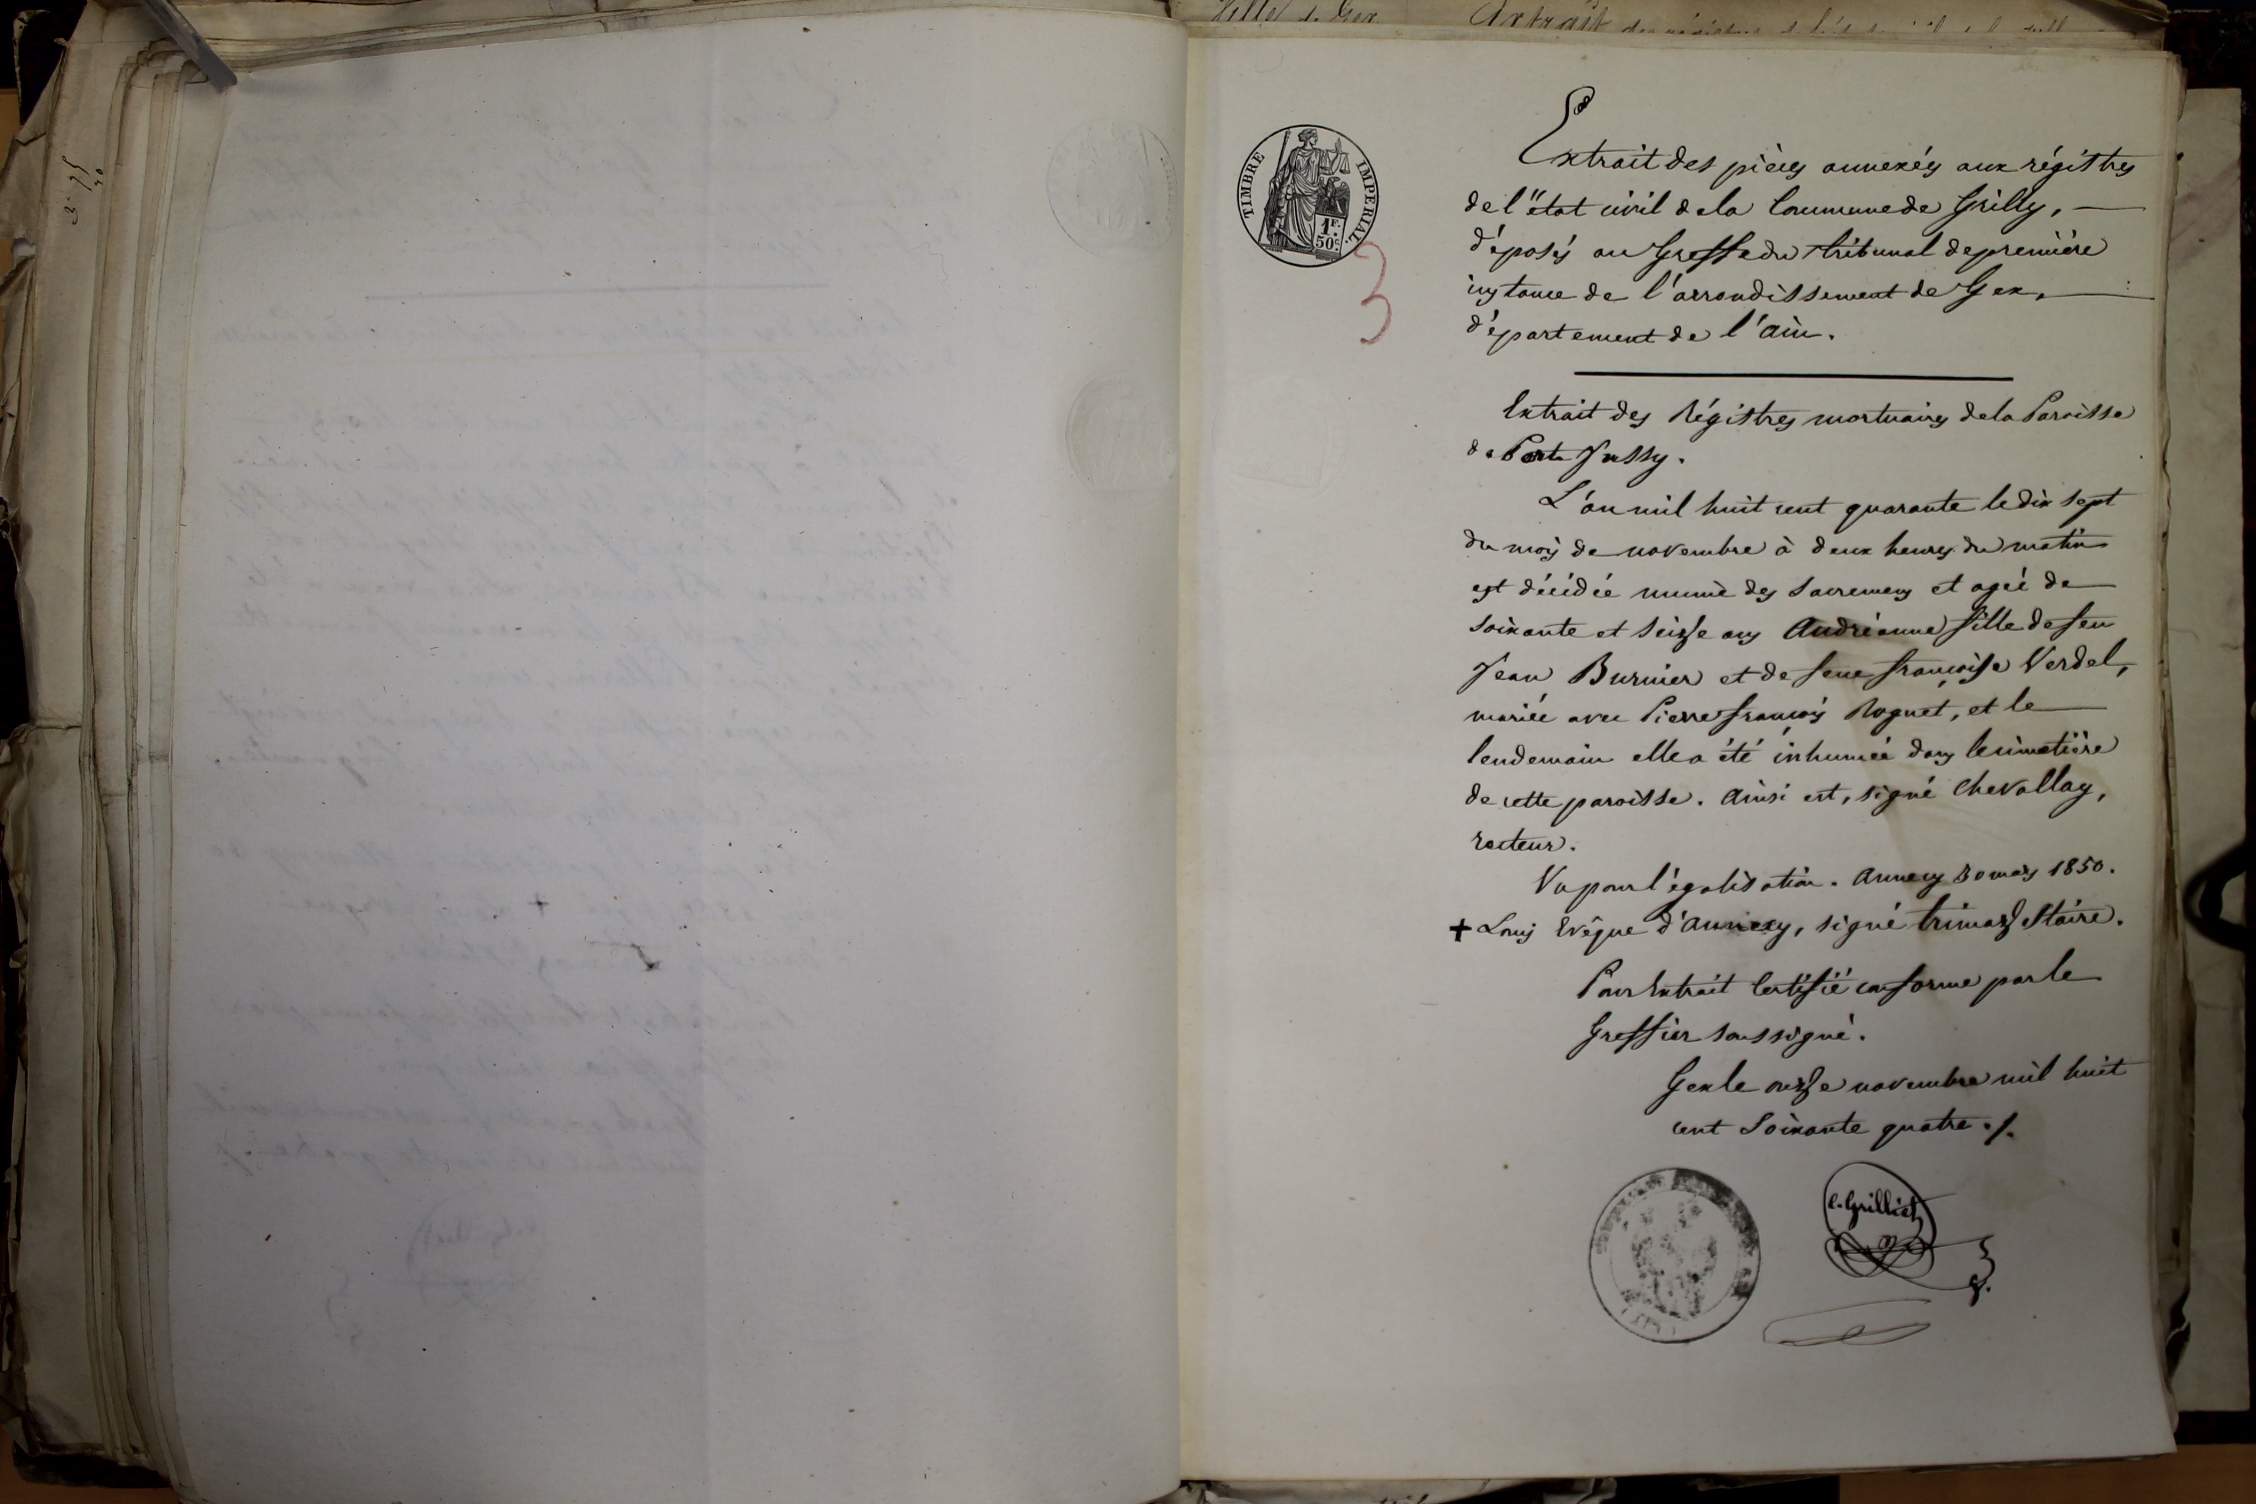 Ville de Gex Extrait des registres de l'état civil de la ville
TIMBRE IMPERIAL.
1F.
50c.
3
Extrait des pièces annexées aux régistres
de l'état civil de la Commune de Grilly,
déposés au Greffe du tribunal de première
instance de l'arrondissement de Gex,
département de l'ain.
Extrait des Régistres mortuaires de la Paroisse
de Porte Jussy.
L'an mil huit cent quarante le dix sept
du mois de novembre à deux heures du matin
est décédée munie des Sacremens et agée de
soixante et seize ans Andréanne fille de feu
Jean Burnier et de feue françoise Verdel,
mariée avec Pierre françois Roguet, et le
lendemain elle a été inhumée dans le cimetière
de cette paroisse. Ainsi est, signé Chevallay,
recteur.
Vu pour légalisation. Annecy 30 mars 1850.
+ Louis Evêque d'Annecy, signé
Pour Extrait Certifié conforme par le
Greffier soussigné.
Gex le onze novembre mil huit
cent soixante quatre ./.
C. Grilliet